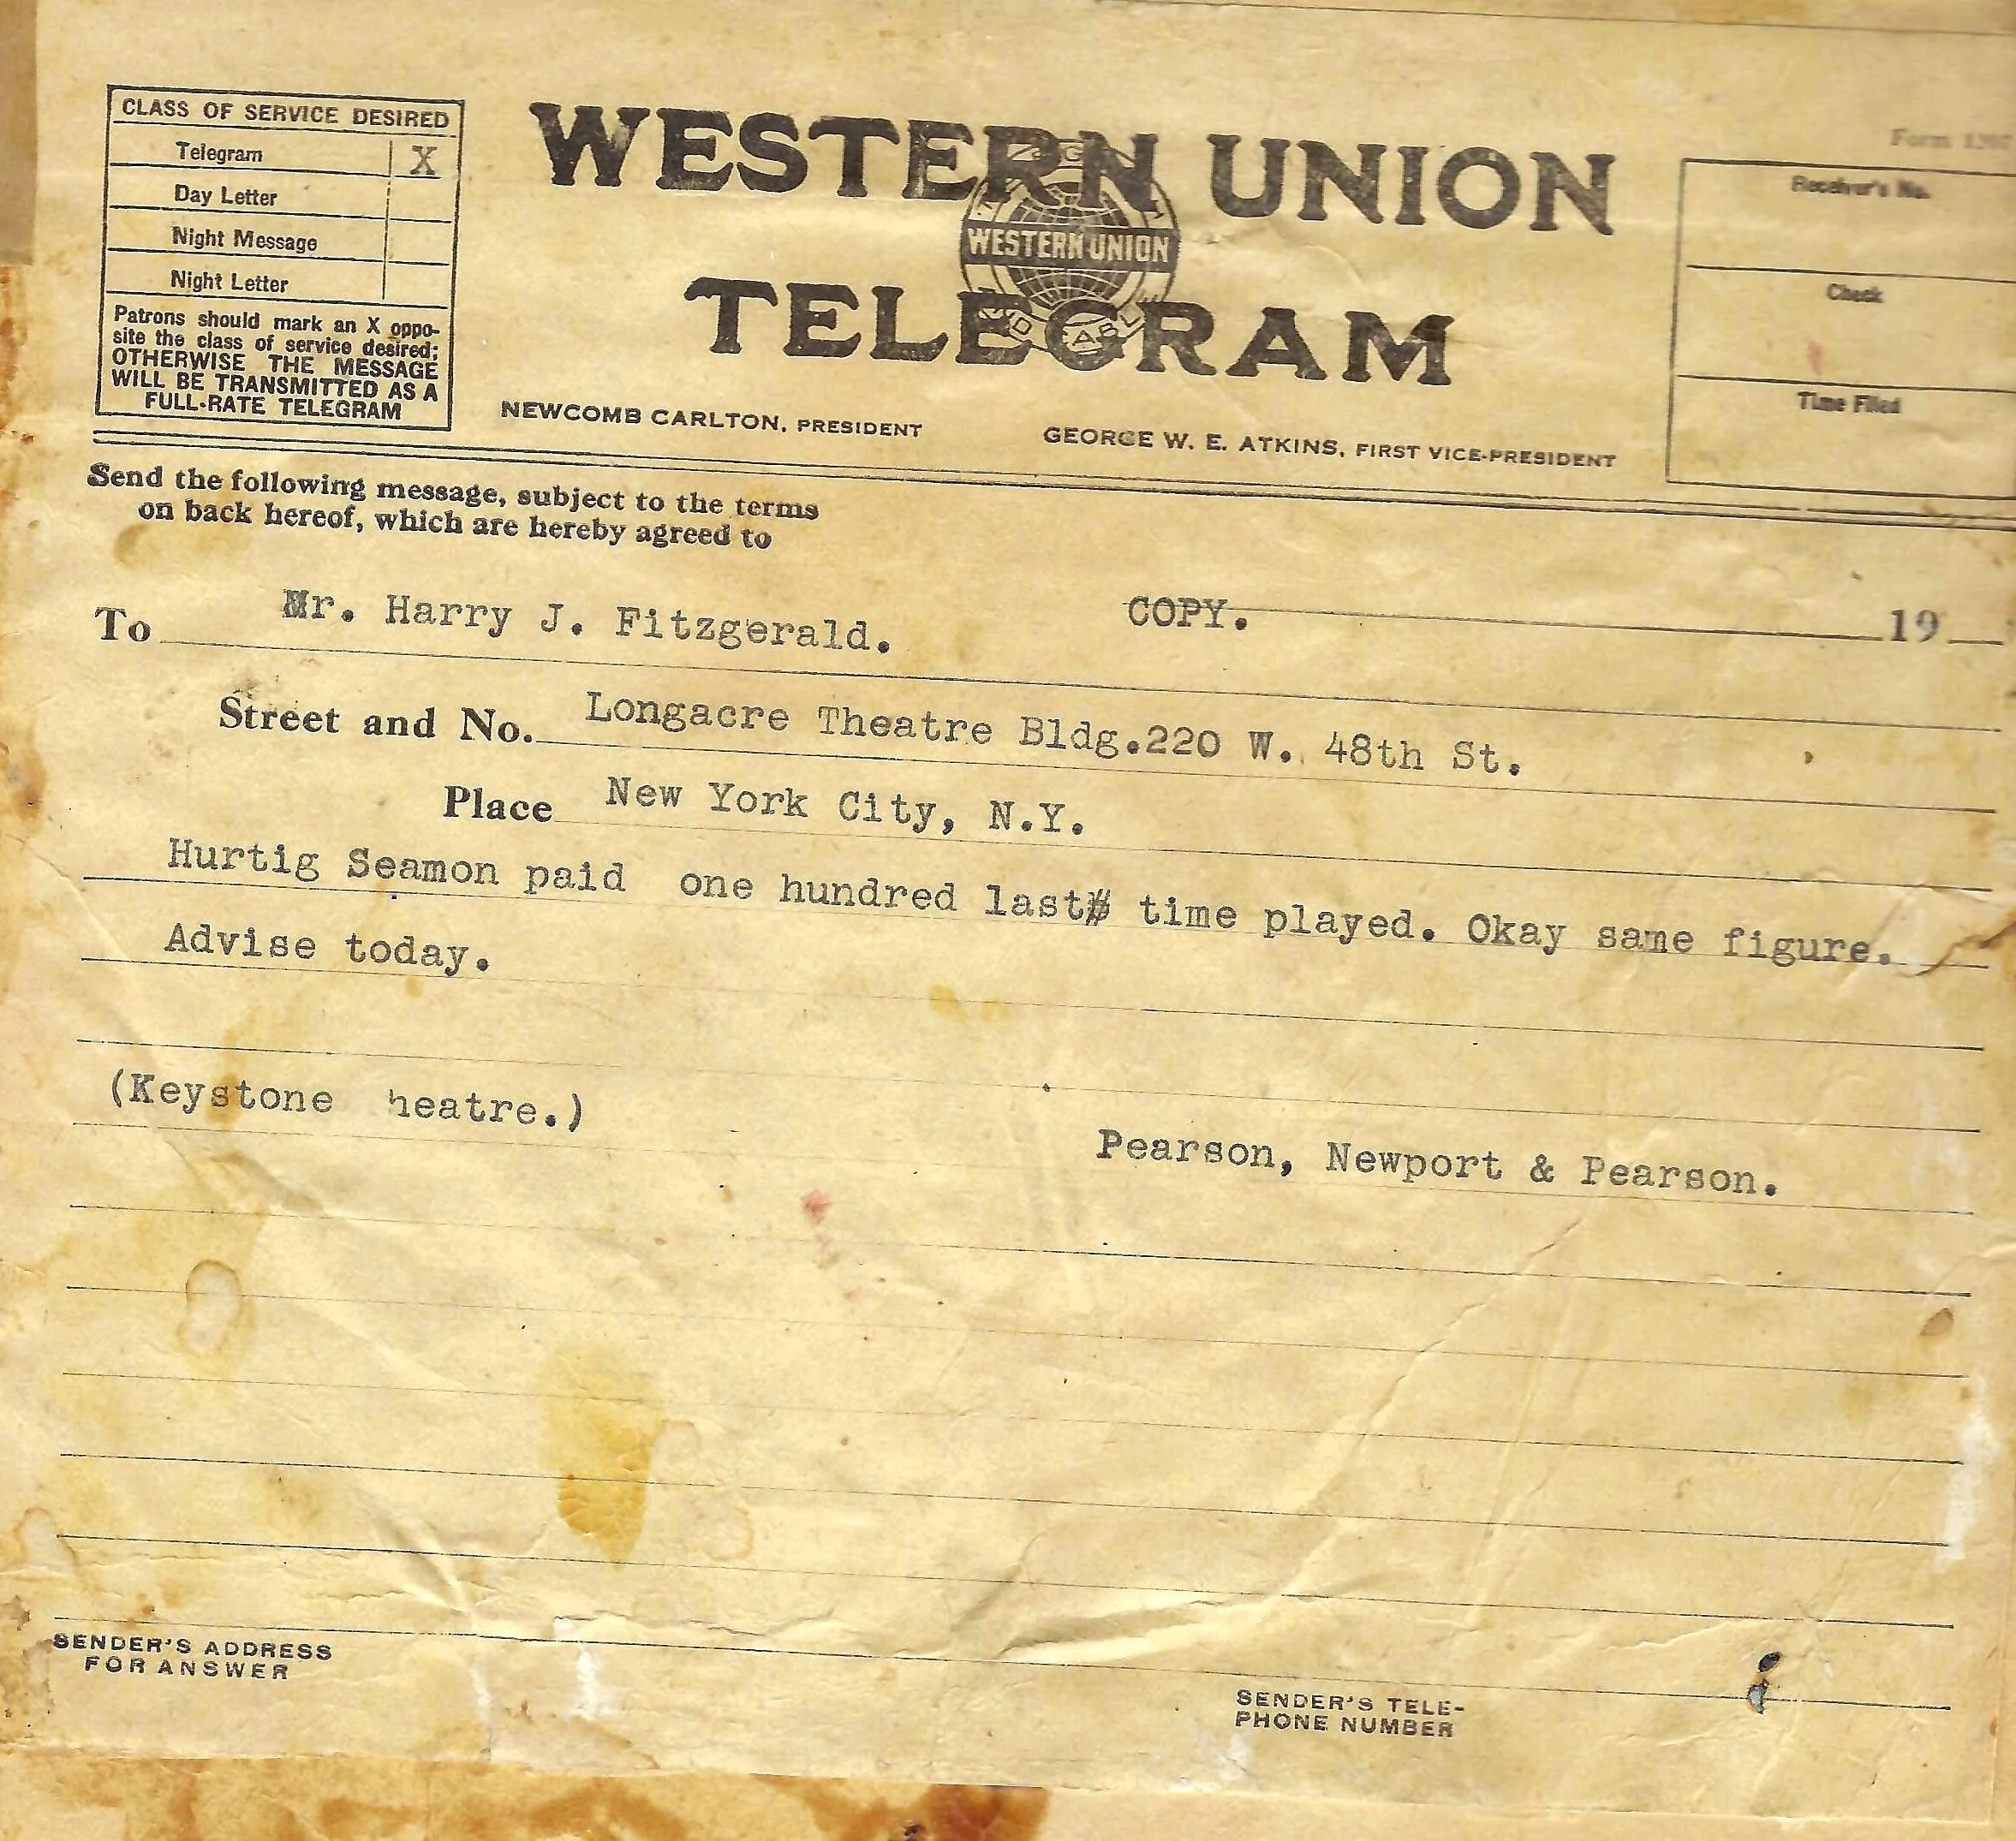 CLASS OF SERVICE DESIRED
Telegram X
Day Letter
Night Message
Night Letter
Patrons should mark an X oppo-
site the class of service desired;
OTHERWISE THE MESSAGE
WILL BE TRANSMITTED AS A
FULL-RATE TELEGRAM
WESTERN UNION
WESTERN UNION
TELEGRAM
NEWCOMB CARLTON, PRESIDENT
GEORGE W. E. ATKINS, FIRST VICE-PRESIDENT
Form
Receiver's No.
Check
Time Filed
Send the following message, subject to the terms
on back hereof, which are hereby agreed to
To Mr. Harry J. Fitzgerald. COPY. 19
Street and No. Longacre Theatre Bldg.220 W. 48th St.
Place New York City, N.Y.
Hurtig Seamon paid one hundred last time played. Okay same figure.
Advise today.
(Keystone heatre.)
Pearson, Newport & Pearson.
SENDER'S ADDRESS
FOR ANSWER
SENDER'S TELE-
PHONE NUMBER